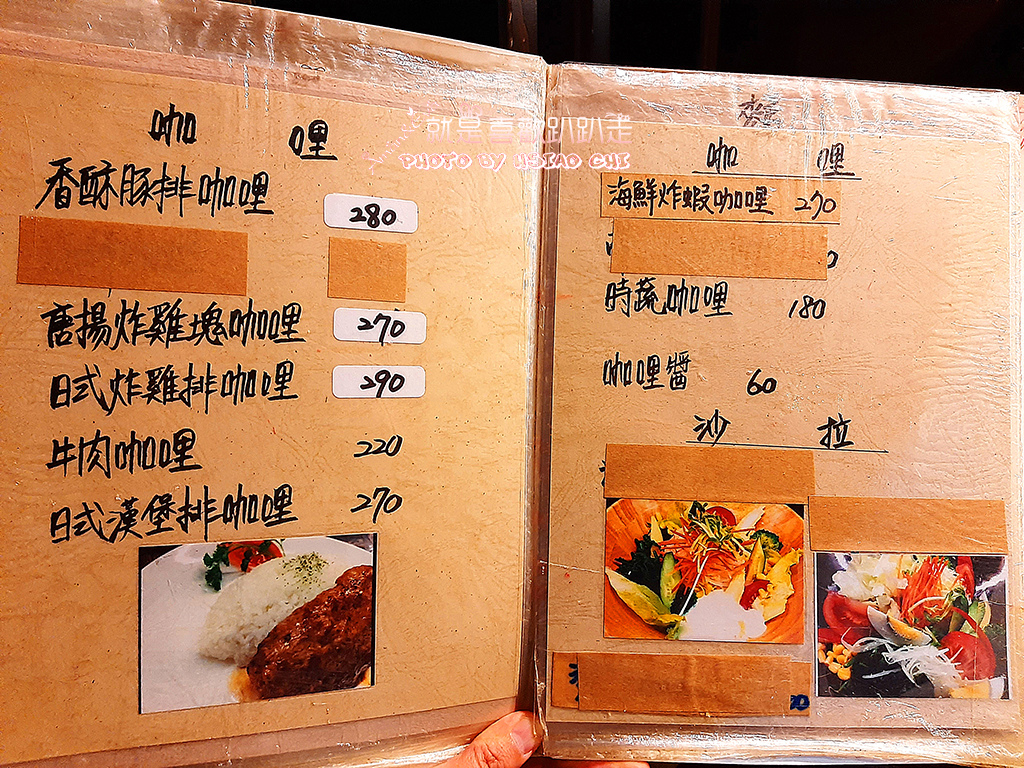 咖哩
香酥豚排咖哩 280
唐揚炸雞塊咖哩 270
日式炸雞排咖哩 290
牛肉咖哩 220
日式漢堡排咖哩 270
就是喜歡趴趴走
PHOTO BY HSIAO CHI
咖哩
海鮮炸蝦咖哩 270
時蔬咖哩 180
咖哩醬 60
沙拉